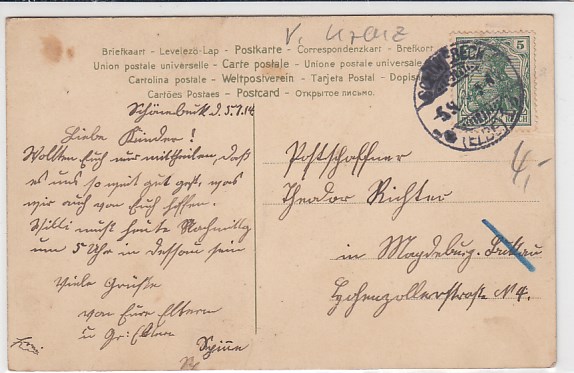 V. Kranz
Briefkaart - Levelező-Lap - Postkarte - Correspondenzkart - Brefkort
Union postale universelle - Carte postale - Unione postale universale
Cartolina postale - Weltpostverein - Tarjeta Postal - Dopis
Cartões Postaes - Postcard - Открытое письмо.
5
(ELBE)
4,-
Schönebeck d. 5.9.14
Liebe Kinder!
Wollten Euch nur mittheilen, daß
es uns so weit gut geht, was
wir auch von Euch hoffen.
Willi muß heute Nachmittg
um 5 Uhr in Dessau sein
Viele Grüße
von Eure Eltern
u
Postschaffner
Theodor Richter
in Magdeburg-Buckau
Hohenzollernstraße N 4.